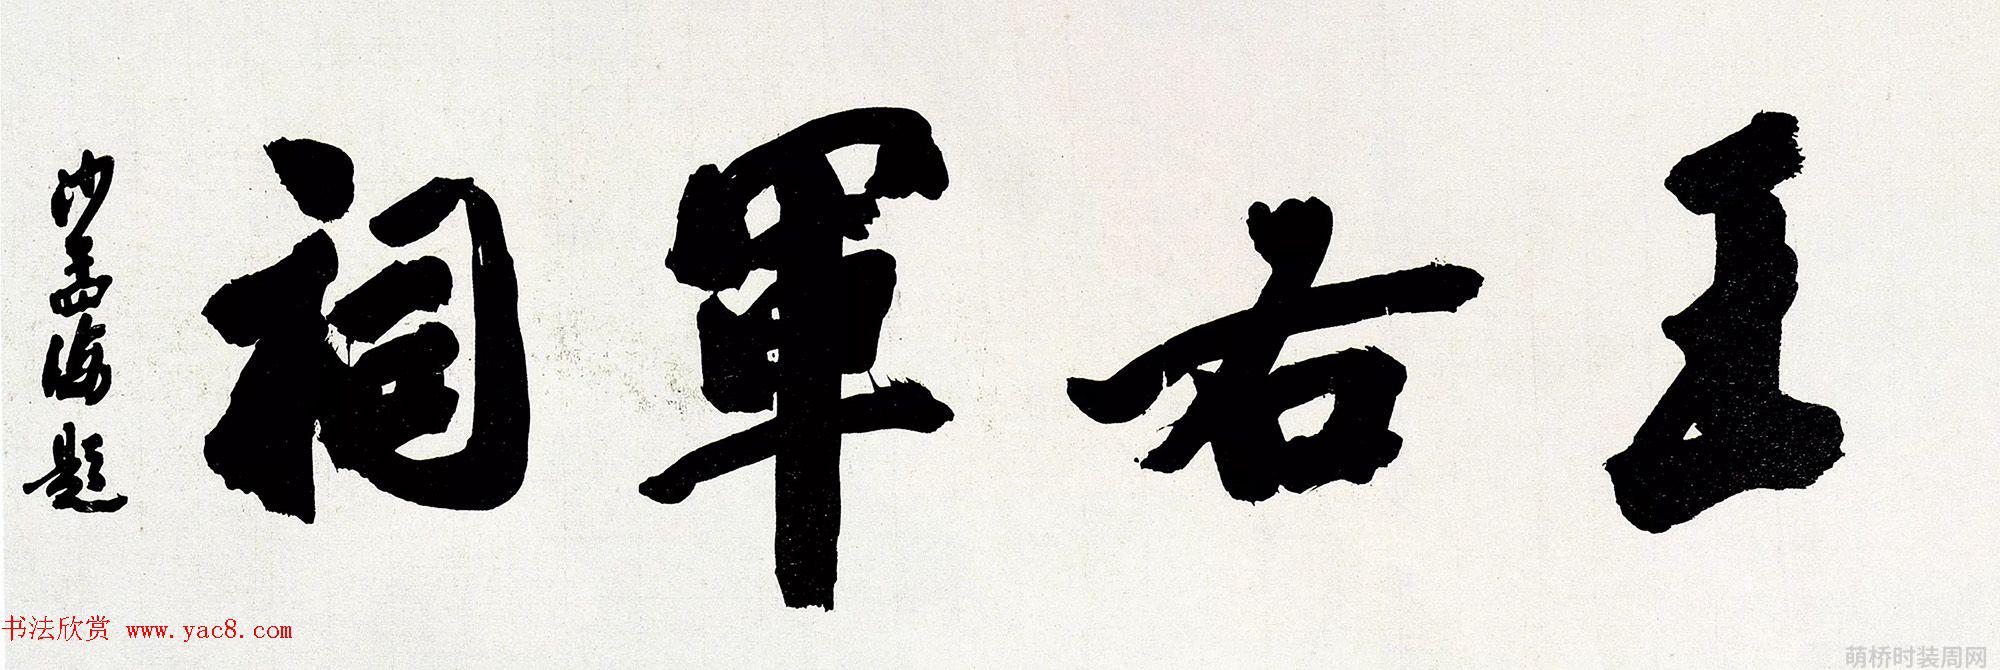 王右軍祠
沙孟海題
书法欣赏 www.yac8.com
萌桥时装周网